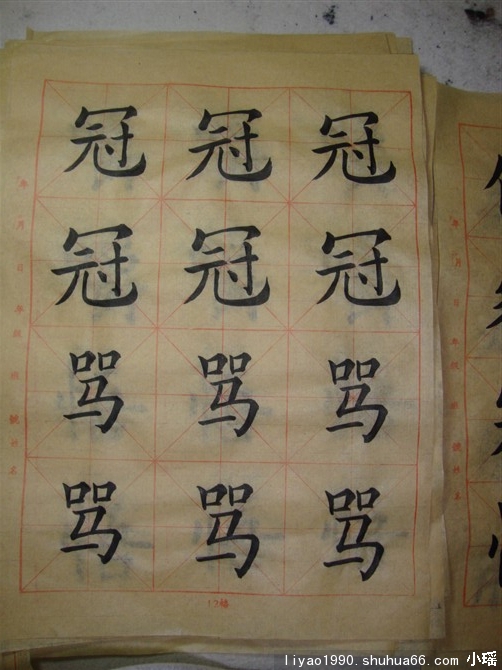 冠冠冠
冠冠冠
骂骂骂
骂骂骂
年 月 日
liyao1990.shuhua66.com 小瑶